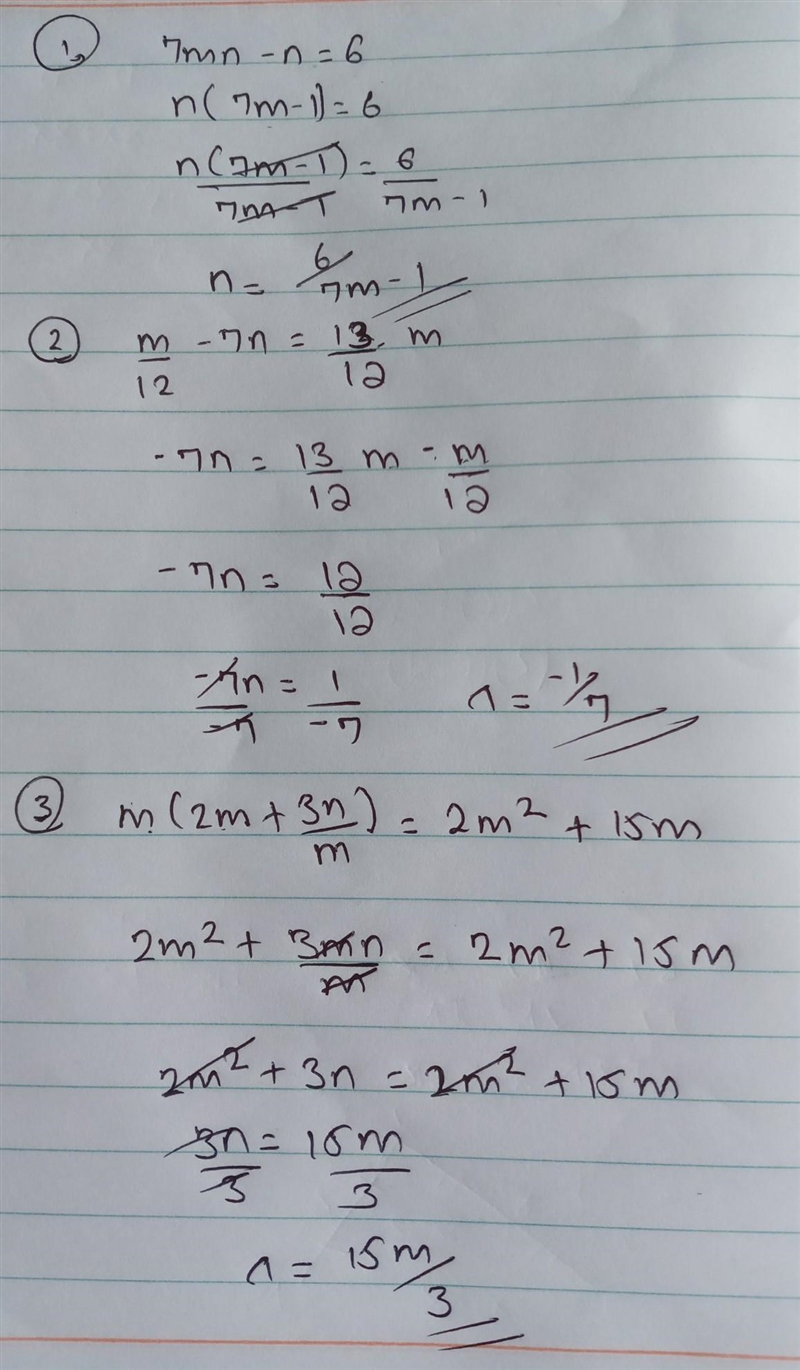 1,
7mn - n = 6
n(7m-1) = 6
n(7m-1)/7m-1 = 6/7m-1
n = 6/7m-1
2
m/12 - 7n = 13/12 m
-7n = 13/12 m - m/12
-7n = 12/12
-7n/-7 = 1/-7 n = -1/7
3
m(2m + 3n/m) = 2m² + 15m
2m² + 3mn/m = 2m² + 15m
2m² + 3n = 2m² + 15m
3n/3 = 15m/3
n = 15m/3